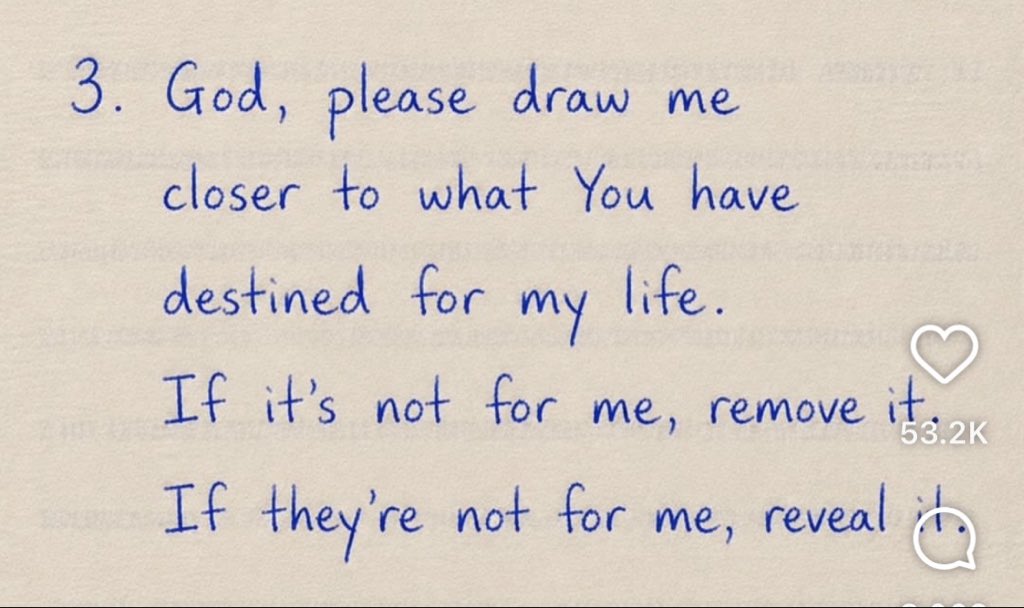 3. God, please draw me
closer to what You have
destined for my life.
If it's not for me, remove it.
53.2K
If they're not for me, reveal it.